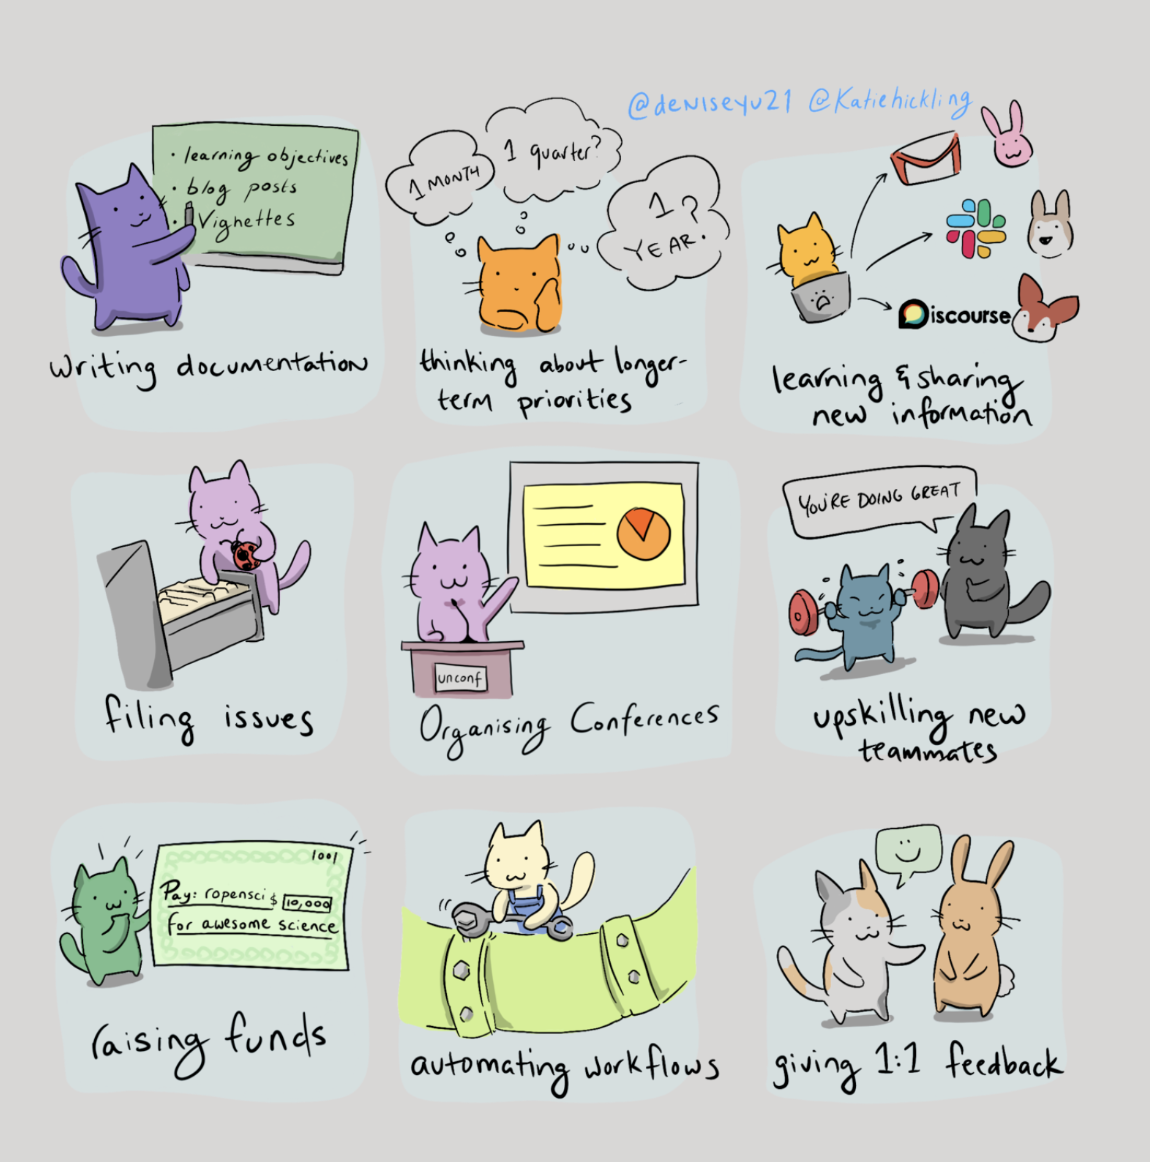 @deniseyu21 @Katiehickling
· learning objectives
· blog posts
· Vignettes
writing documentation
1 MONTH
1 quarter?
1
YEAR?
thinking about longer-
term priorities
Discourse
learning & sharing
new information
filing issues
unconf
Organising Conferences
YOU'RE DOING GREAT
upskilling new
teammates
1001
Pay: ropensci $ 10,000
for awesome science
raising funds
automating workflows
giving 1:1 feedback